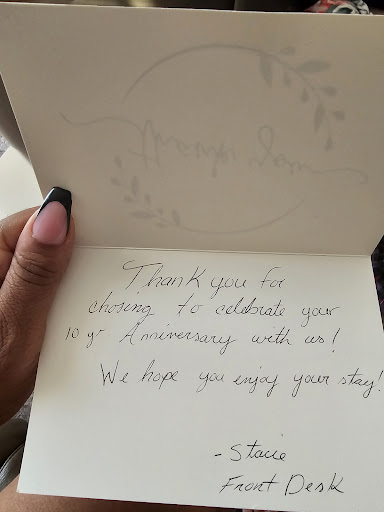 Thank You
Thank you for
chosing to celebrate your
10 yr Anniversary with us!
We hope you enjoy your stay!
- Stacie
Front Desk